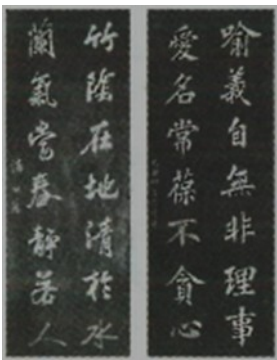 喻義自無非理事
愛名常葆不貪心
竹陰在地清於水
蘭氣當春靜若人